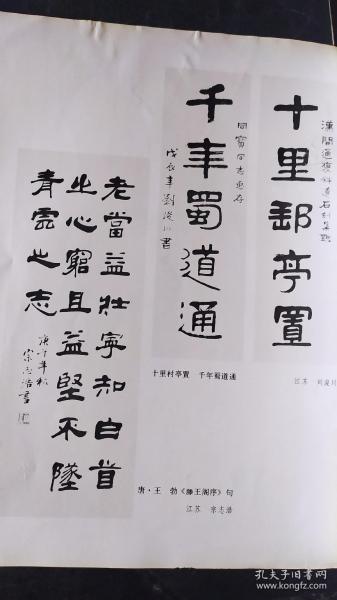 十里邨亭置
漢開通褒斜道石刻集联
千年蜀道通
同寶同志惠存
戊辰年劉浚川書
江苏 刘浚川
十里村亭置 千年蜀道通
老當益壯寧知白首
之心窮且益堅不墜
青雲之志
庚午年秋
宗志浩書
唐·王 勃《滕王阁序》句
江苏 宗志浩
孔夫子旧书网